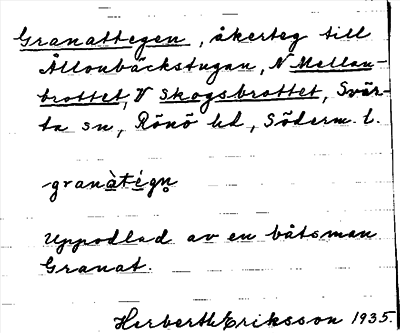 Granattegen, åkerteg till
Ållonbäckstugan, N Mellan-
brottet, V Skogsbrottet, Svär-
ta sn, Rönö hd, Söderm. l.
-granàtégn̥
Uppodlad av en båtsman
Granat.
Herberth Eriksson 1935.